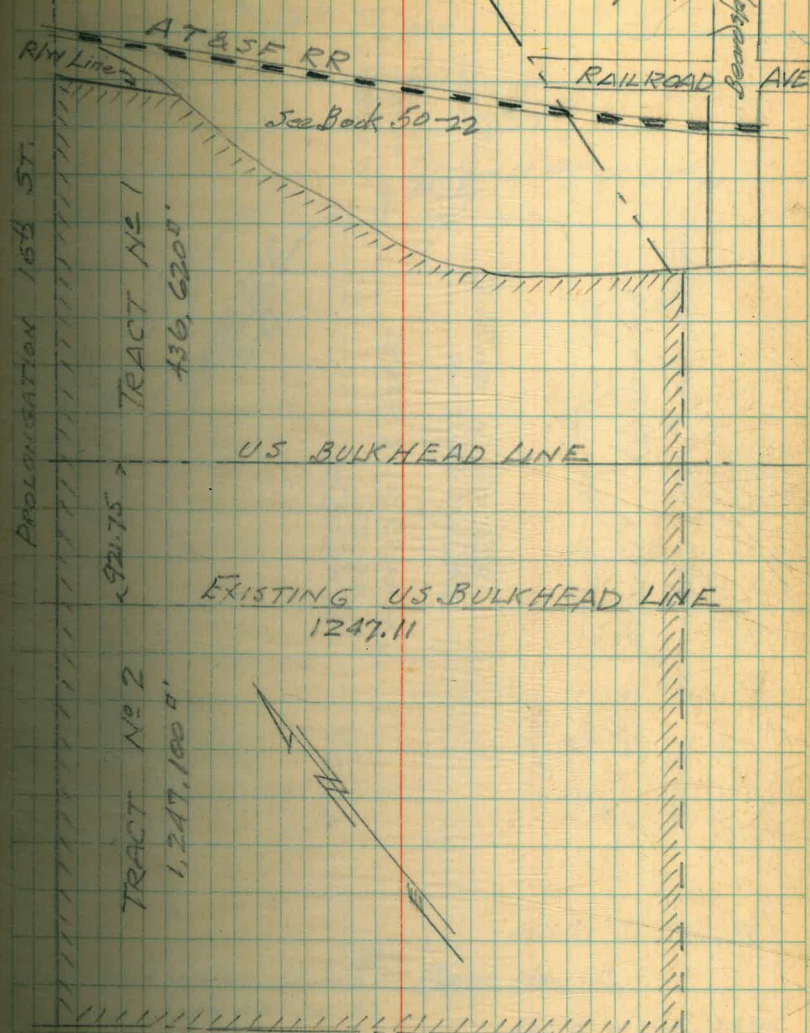 AT&SF RR
R/W Line
RAILROAD AVE
See Book 50-22
PROLONGATION 16th ST.
TRACT No 1
436,620 □'
US BULKHEAD LINE
921.75
EXISTING US BULKHEAD LINE
1247.11
TRACT No 2
1,247,100 □'
N